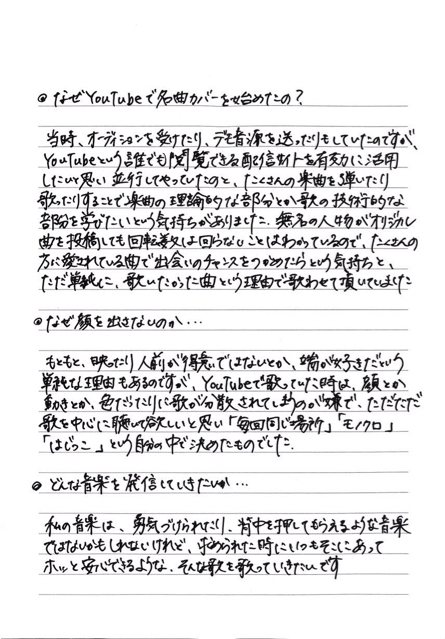 ◎ なぜYouTubeで名曲カバーを始めたの？
当時、オーディションを受けたり、デモ音源を送ったりもしていたのですが、
YouTubeという誰でも閲覧できる配信サイトを有効に活用
したいと思い並行してやっていたのと、たくさんの楽曲を弾いたり
歌ったりすることで楽曲の理論的な部分とか歌の技術的な
部分を学びたいという気持ちがありました。無名の人物がオリジナル
曲を投稿しても回転数は回らないことはわかっているので、たくさんの
方に愛されている曲で出会いのチャンスをつかめたらという気持ちと、
ただ単純に、歌いたかった曲という理由で歌わせて頂いていました
◎ なぜ顔を出さないのか…
もともと、映ったり人前が得意ではないとか、端が好きだという
単純な理由もあるのですが、YouTubeで歌っていた時は、顔とか
動きとか、色だったりに歌が分散されてしまうのが嫌で、ただただ
歌を中心に聴いて欲しいと思い「毎回同じ場所」「モノクロ」
「はじっこ」という自分の中で決めたものでした。
◎ どんな音楽を発信していきたいか…
私の音楽は、勇気づけられたり、背中を押してもらえるような音楽
ではないかもしれないけれど、求められた時にいつもそこにあって
ホッと安心できるような、そんな歌を歌っていきたいです